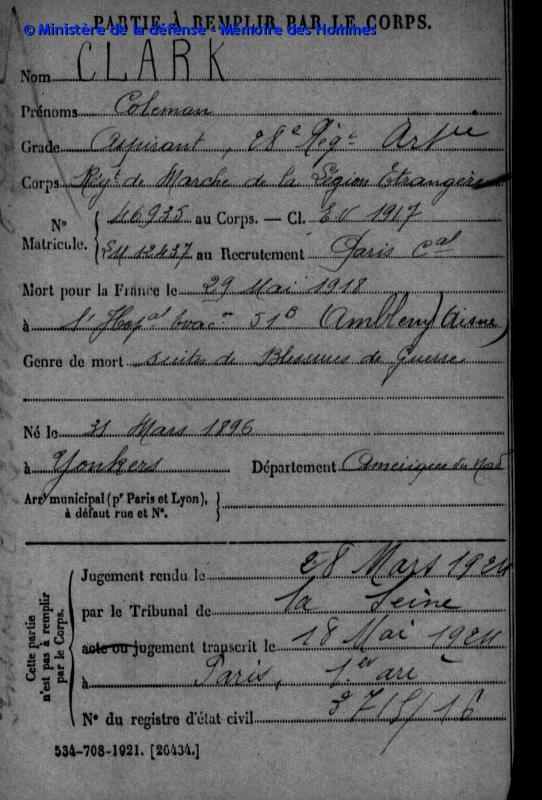 PARTIE À REMPLIR PAR LE CORPS.
© Ministère de la défense - Mémoire des Hommes
Nom CLARK
Prénoms Coleman
Grade Aspirant, 28e Régt Artie
Corps Régt de Marche de la Légion Etrangère
N° Matricule. { 46935 au Corps. — Cl. EV 1917
EM 12437 au Recrutement Paris Cal
Mort pour la France le 29 Mai 1918
à l'Hopal Evac 51B (Ambleny) (Aisne)
Genre de mort suites de Blessures de Guerre
Né le 31 Mars 1896
à Yonkers Département Amérique du Nord
Arrt municipal (pr Paris et Lyon),
à défaut rue et N°. }
Cette partie
n'est pas à remplir
par le Corps.
Jugement rendu le 28 Mars 1924
par le Tribunal de la Seine
acte ou jugement transcrit le 18 Mai 1924
à Paris, 1er
N° du registre d'état civil
534-708-1921. [26434.]